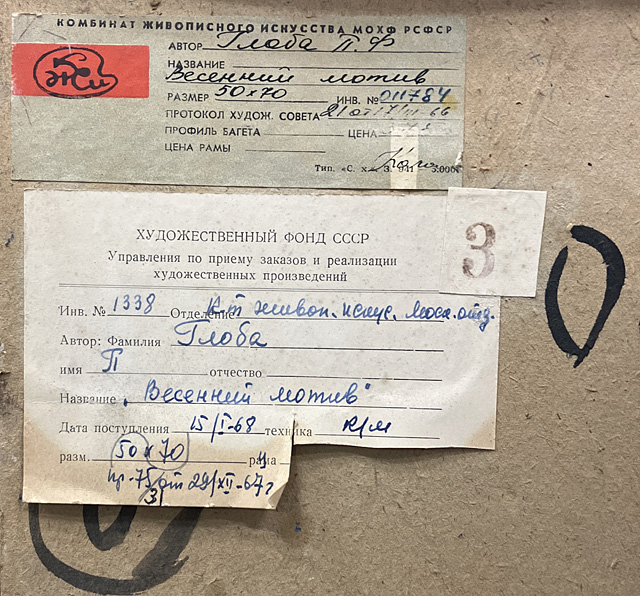 КОМБИНАТ ЖИВОПИСНОГО ИСКУССТВА МОХФ РСФСР
АВТОР Глоба П Ф
НАЗВАНИЕ
Весенний мотив
РАЗМЕР 50х70 ИНВ. № 011784
ПРОТОКОЛ ХУДОЖ. СОВЕТА 21 от 17/III-66
ПРОФИЛЬ БАГЕТА ЦЕНА
ЦЕНА РАМЫ
Тип. «С. х.». З. 941 — 3.000
3
ХУДОЖЕСТВЕННЫЙ ФОНД СССР
Управления по приему заказов и реализации
художественных произведений
Инв. № 1338 Отделение К-т живоп. искус. Моск. отд.
Автор: Фамилия Глоба
имя П отчество
Название „Весенний мотив"
Дата поступления 15/I-68 техника к/м
разм. 50х70 рама
пр-75 от 29/XII-67г